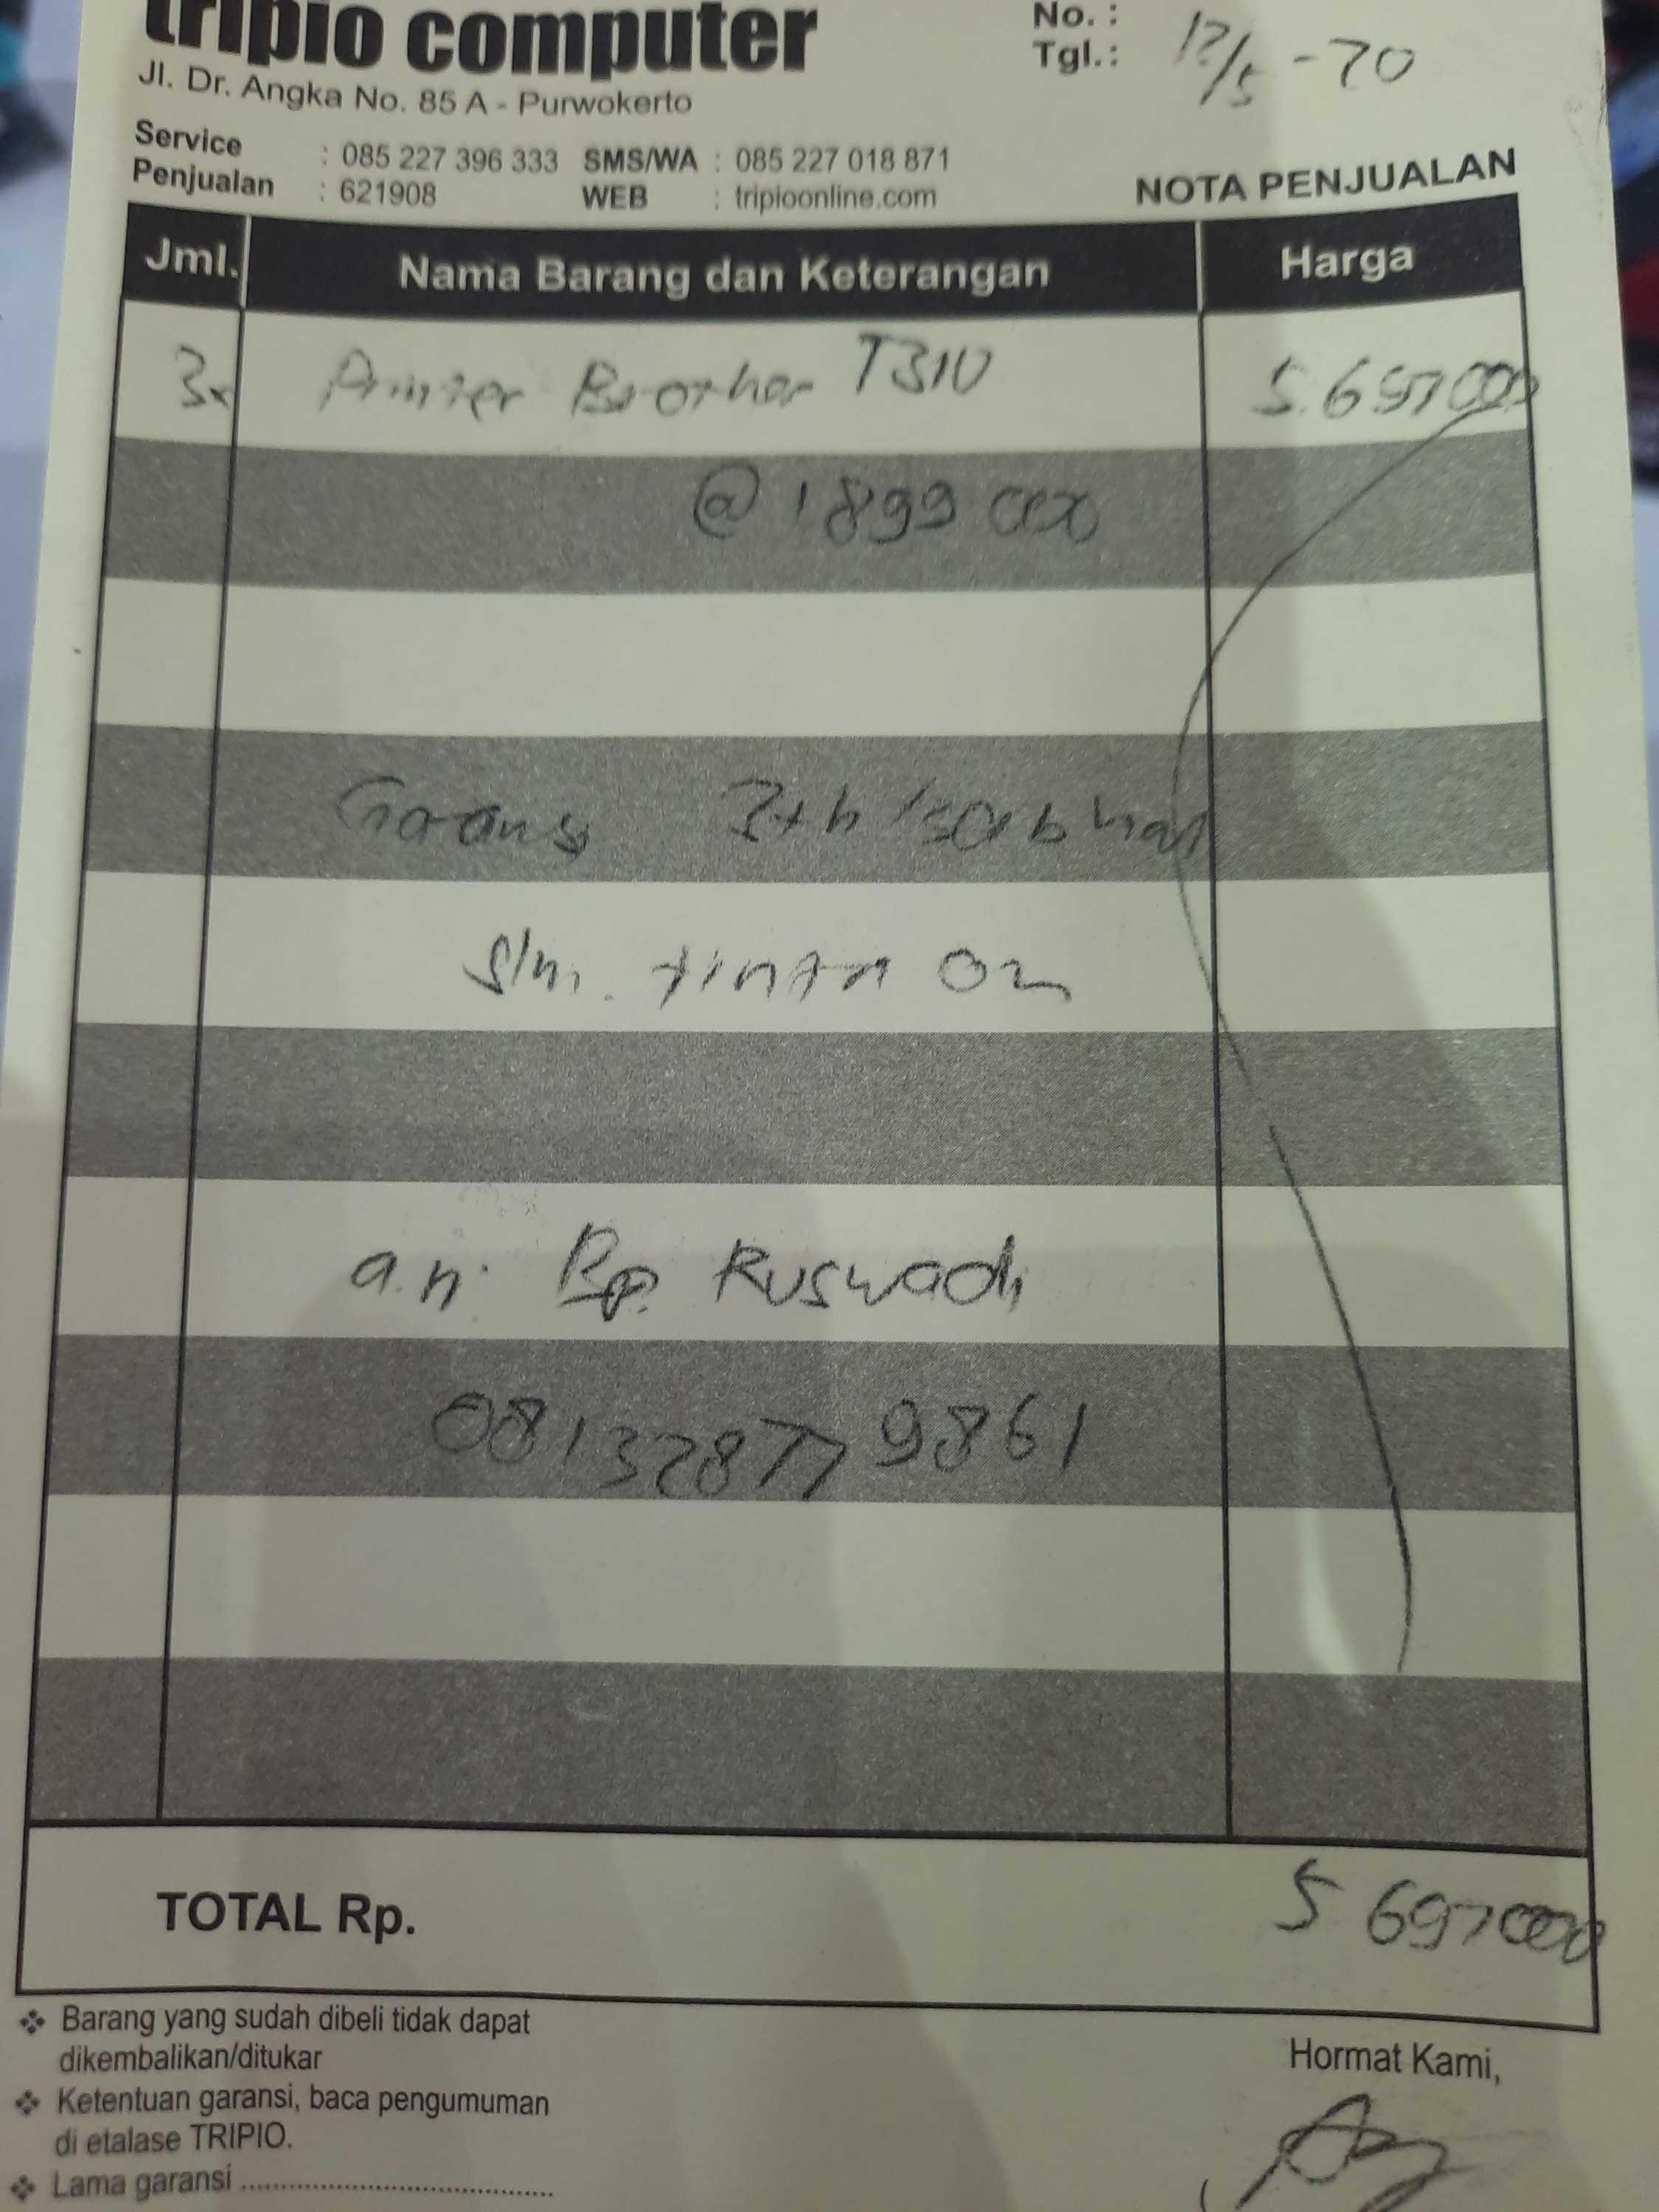 tripio computer
Jl. Dr. Angka No. 85 A - Purwokerto
Service : 085 227 396 333 SMS/WA : 085 227 018 871
Penjualan : 621908 WEB : tripioonline.com
No. :
Tgl.:
NOTA PENJUALAN
Jml. Nama Barang dan Keterangan Harga
3x Printer Brother T310 5.697000
@ 1899 000
Garansi
s/n. tinta On
a.n. Bp. Ruswadi
081328779861
TOTAL Rp. 5 697000
❖ Barang yang sudah dibeli tidak dapat
dikembalikan/ditukar
❖ Ketentuan garansi, baca pengumuman
di etalase TRIPIO.
❖ Lama garansi ........................................
Hormat Kami,